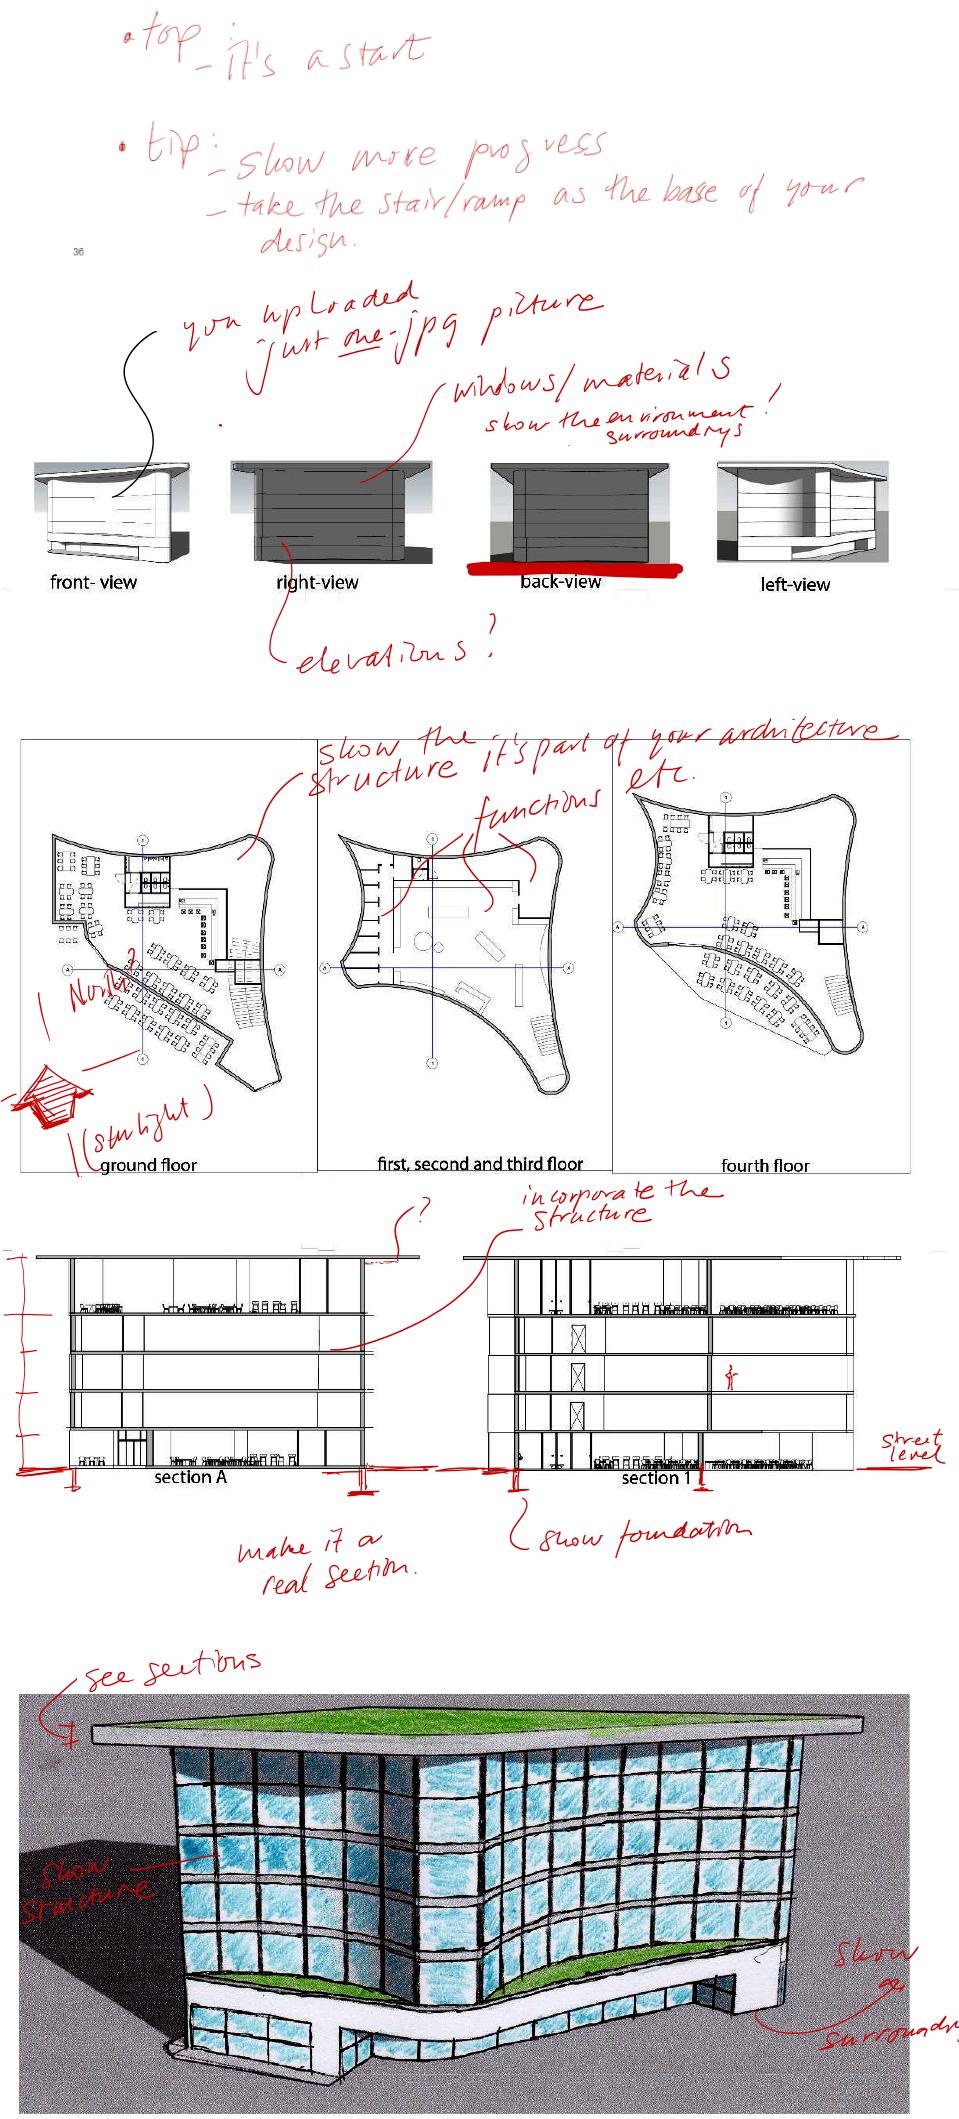 • top
- it's a start
• tip:
- show more progress
- take the stair/ramp as the base of your
design.
36
you uploaded
just one-jpg picture
windows/materials
show the environment!
surroundngs
front- view
right-view
back-view
left-view
elevations?
show the
structure it's part of your architecture
etc.
functions
North?
(sunlight)
ground floor
first, second and third floor
fourth floor
?
incorporate the
structure
street
level
section A
section 1
make it a
real section.
show foundation
see sections
?
show
structure
show
surroundng